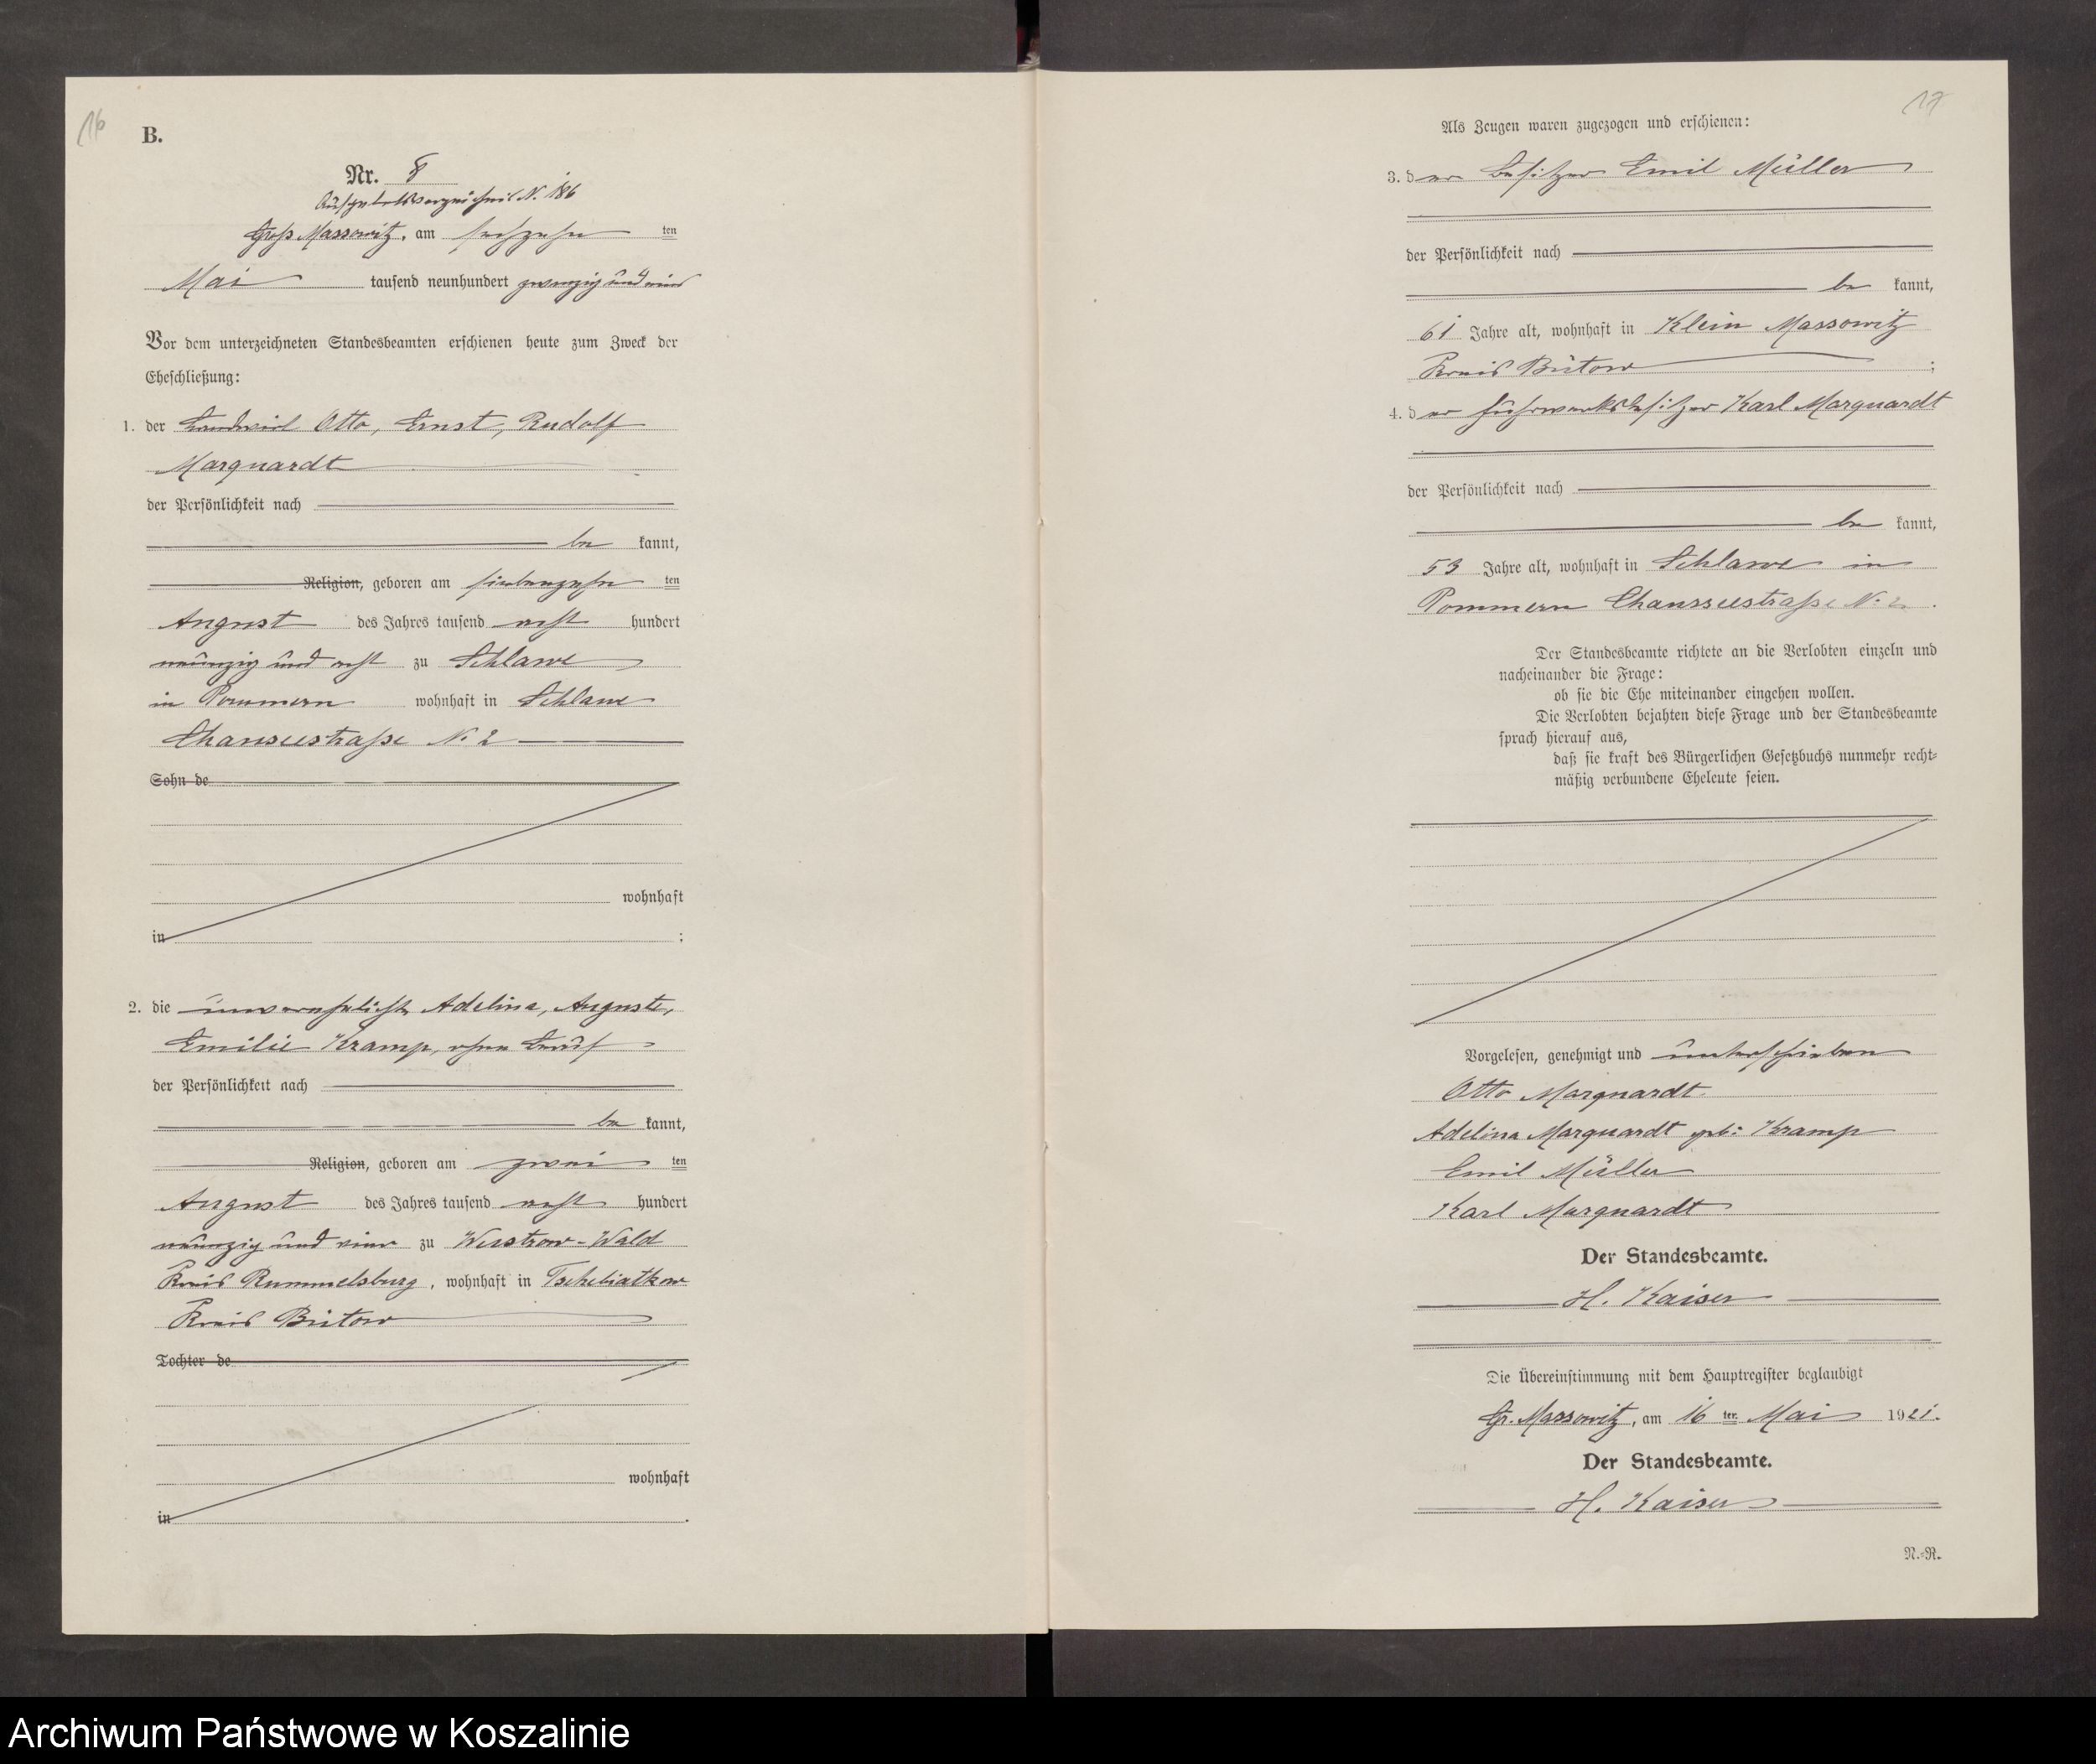 16
B.
Nr. 8
Aufgebotsverzeichnis N. 186
Gross Massowitz, am sechzehn ten
Mai tausend neunhundert zwanzig und eins
Vor dem unterzeichneten Standesbeamten erschienen heute zum Zweck der
Eheschließung:
1. der Landwirt Otto, Ernst, Rudolf
Marquardt
der Persönlichkeit nach
be kannt,
Religion, geboren am siebenzehn ten
August des Jahres tausend acht hundert
neunzig und acht zu Schlawe
in Pommern wohnhaft in Schlawe
Chausseestraße N. 2
Sohn de
wohnhaft
in ;
2. die unverehelichte Adelina, Auguste,
Emilie Kramp, ohne Beruf
der Persönlichkeit nach
be kannt,
Religion, geboren am zwei ten
August des Jahres tausend acht hundert
neunzig und vier zu Wustrow-Wald
Kreis Rummelsburg, wohnhaft in Tschebiatkow
Kreis Bütow
Tochter de
wohnhaft
in .
17
Als Zeugen waren zugezogen und erschienen:
3. der Besitzer Emil Müller
der Persönlichkeit nach
be kannt,
61 Jahre alt, wohnhaft in Klein Massowitz
Kreis Bütow ;
4. der Fuhrwerksbesitzer Karl Marquardt
der Persönlichkeit nach
be kannt,
53 Jahre alt, wohnhaft in Schlawe in
Pommern Chausseestraße N. 2.
Der Standesbeamte richtete an die Verlobten einzeln und
nacheinander die Frage:
ob sie die Ehe miteinander eingehen wollen.
Die Verlobten bejahten diese Frage und der Standesbeamte
sprach hierauf aus,
daß sie kraft des Bürgerlichen Gesetzbuchs nunmehr recht-
mäßig verbundene Eheleute seien.
Vorgelesen, genehmigt und unterschrieben
Otto Marquardt
Adelina Marquardt geb: Kramp
Emil Müller
Karl Marquardt
Der Standesbeamte.
H. Kaiser
Die Übereinstimmung mit dem Hauptregister beglaubigt
Gr. Massowitz, am 16 ten Mai 1921.
Der Standesbeamte.
H. Kaiser
N.-R.
Archiwum Państwowe w Koszalinie